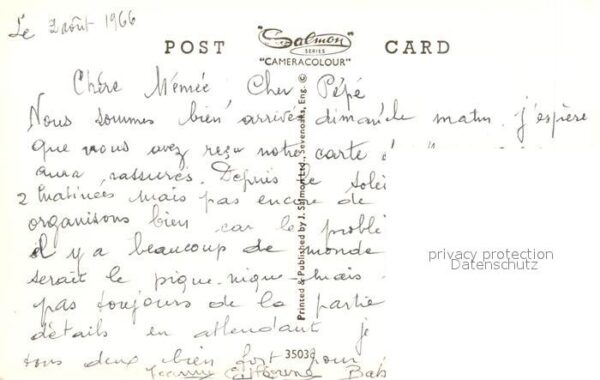 Le 2 août 1966
POST CARD
"Salmon"
SERIES
"CAMERACOLOUR"
Chère Mémée Cher Pépé
Nous sommes bien arrivés dimanche matin. j'espère
que vous avez reçu notre carte
aura rassurés. Depuis le solei
2 matinées mais pas encore de
organisons bien car le problè
il y a beaucoup de monde
serait le pique-nique mais
pas toujours de la partie
détails en attendant je
tous deux bien fort pour
Jeannine
35038
Printed & Published by J. Salmon Ltd., Sevenoaks, Eng. ©
privacy protection
Datenschutz